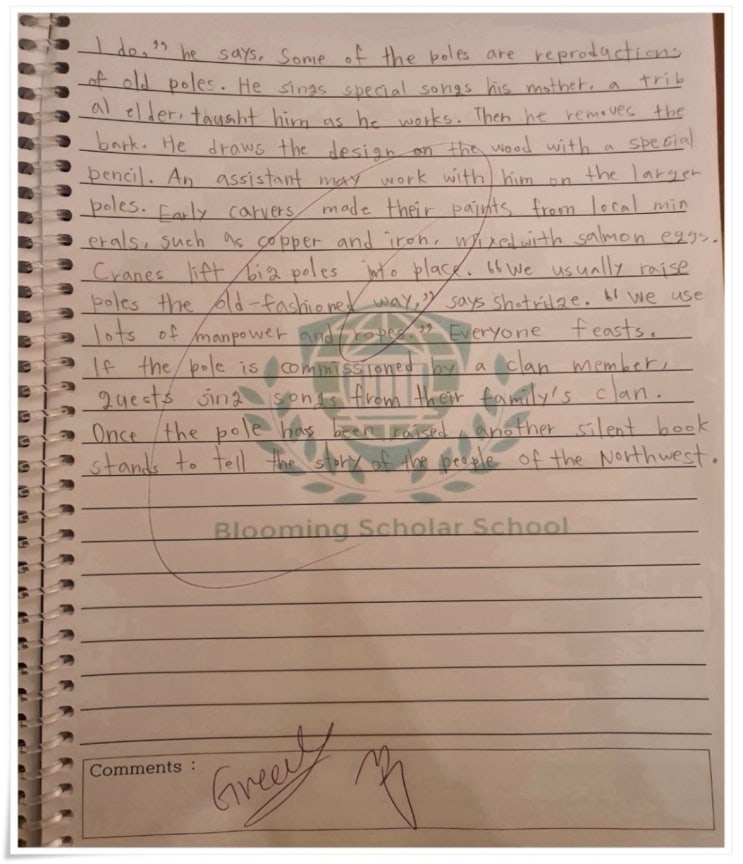 I do," he says. Some of the poles are reproductions
of old poles. He sings special songs his mother, a trib
al elder, taught him as he works. Then he removes the
bark. He draws the design on the wood with a special
pencil. An assistant may work with him on the larger
poles. Early carvers made their paints from local min
erals, such as copper and iron, mixed with salmon eggs.
Cranes lift big poles into place. "We usually raise
poles the old-fashioned way," says Shotridge. "We use
lots of manpower and ropes." Everyone feasts.
If the pole is commissioned by a clan member,
guests sing songs from their family's clan.
Once the pole has been raised, another silent book
stands to tell the story of the people of the Northwest.
Blooming Scholar School
Comments :